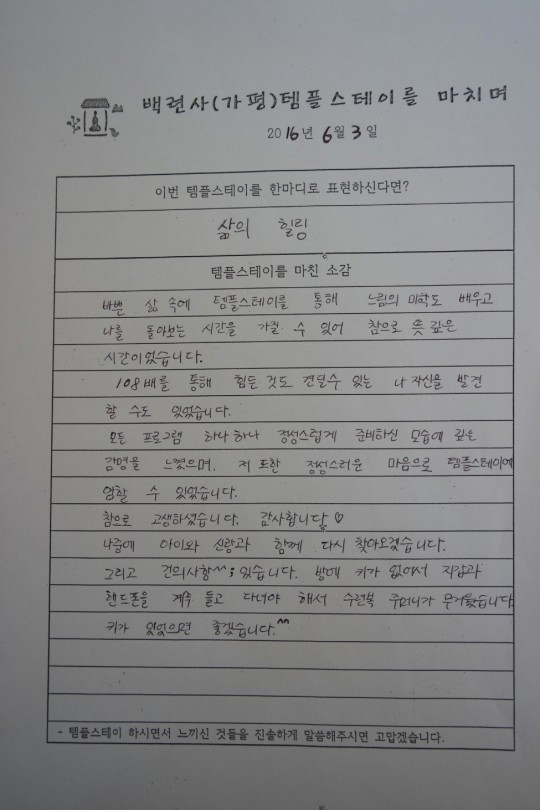 백련사(가평)템플스테이를 마치며
2016년 6월 3일
이번 템플스테이를 한마디로 표현하신다면?
삶의 힐링
템플스테이를 마친 소감
바쁜 삶 속에 템플스테이를 통해 느림의 미학도 배우고
나를 돌아보는 시간을 가질 수 있어 참으로 뜻 깊은
시간이었습니다.
108배를 통해 힘든 것도 견딜수 있는 나 자신을 발견
할 수도 있었습니다.
모든 프로그램 하나하나 정성스럽게 준비하신 모습에 깊은
감명을 느꼈으며, 저 또한 정성스러운 마음으로 템플스테이에
임할 수 있었습니다.
참으로 고생하셨습니다. 감사합니다 ♡
나중에 아이와 신랑과 함께 다시 찾아오겠습니다.
그리고 건의사항^^; 있습니다. 방에 키가 없어서 지갑과
핸드폰을 계속 들고 다녀야 해서 수련복 주머니가 무거웠습니다
키가 있었으면 좋겠습니다.^^
- 템플스테이 하시면서 느끼신 것들을 진솔하게 말씀해주시면 고맙겠습니다.